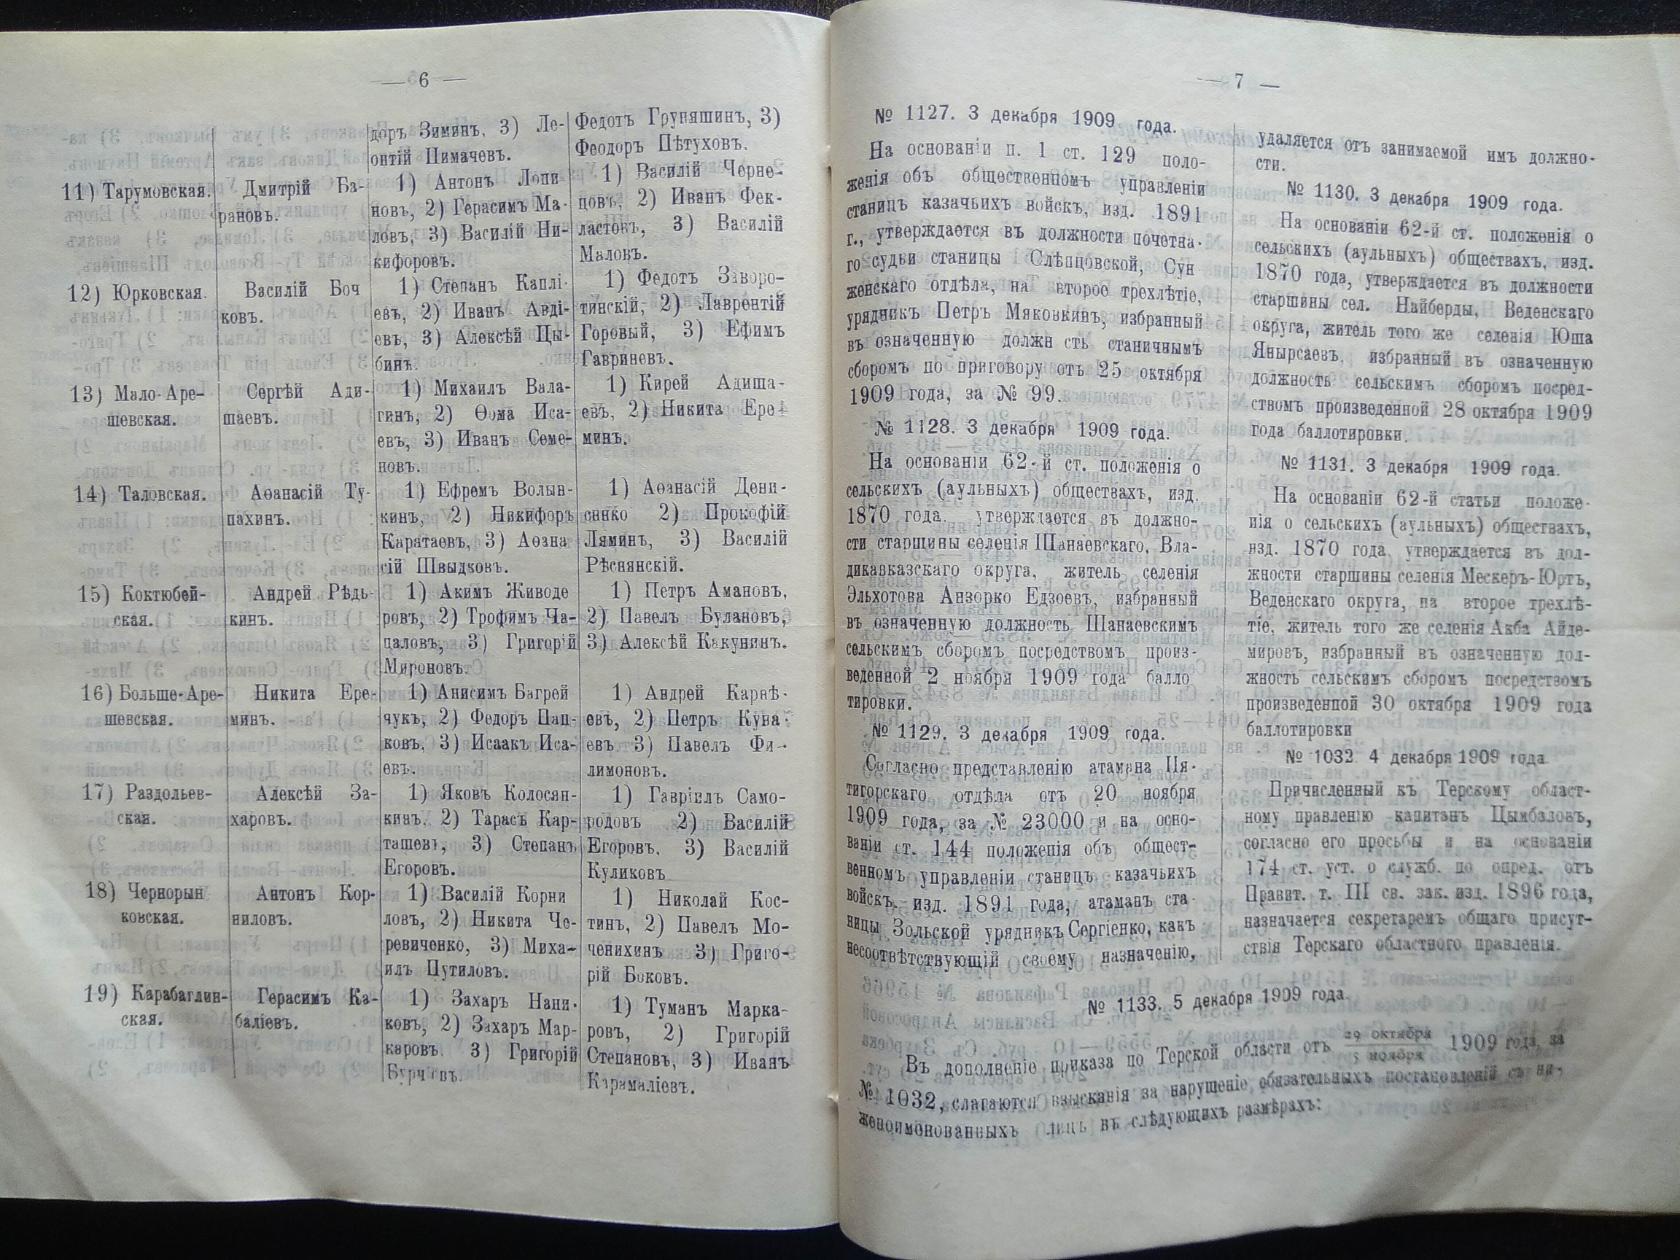 — 6 —
доръ Зиминъ, 3) Ле-
онтій Пимачевъ.
Федотъ Груняшинъ, 3)
Феодоръ Пѣтуховъ.
11) Тарумовская.
Дмитрій Ба-
рановъ.
1) Антонъ Лопи-
новъ, 2) Герасимъ Ма-
ловъ, 3) Василій Ни-
кифоровъ.
1) Василій Черне-
цовъ, 2) Иванъ Фек-
ластовъ, 3) Василій
Маловъ.
12) Юрковская.
Василій Боч
ковъ.
1) Степанъ Каплі-
евъ, 2) Иванъ Авді-
евъ, 3) Алексѣй Цы-
бинъ.
1) Федотъ Заворо-
тинскій, 2) Лаврентій
Горовый, 3) Ефимъ
Гавриневъ.
13) Мало-Аре-
шевская.
Сергѣй Ади-
шаевъ.
1) Михаилъ Вала-
гинъ, 2) Ѳома Иса-
евъ, 3) Иванъ Семе-
новъ.
1) Кирей Адиша-
евъ, 2) Никита Ере-
минъ.
14) Таловская.
Аѳанасій Ту-
пахинъ.
1) Ефремъ Волын-
кинъ, 2) Никифоръ
Каратаевъ, 3) Аѳана
сій Швыдковъ.
1) Аѳанасій Дени-
сенко 2) Прокофій
Ляминъ, 3) Василій
Рѣснянскій.
15) Коктюбей-
ская.
Андрей Рѣдь-
кинъ.
1) Акимъ Живоде
ровъ, 2) Трофимъ Ча-
цаловъ, 3) Григорій
Мироновъ.
1) Петръ Амановъ,
2) Павелъ Булановъ,
3) Алексѣй Какунинъ.
16) Больше-Аре-
шевская.
Никита Ере-
минъ.
1) Анисимъ Багрей
чукъ, 2) Федоръ Пап-
ковъ, 3) Исаакъ Иса-
евъ.
1) Андрей Карнѣ-
евъ, 2) Петръ Кува-
евъ 3) Павелъ Фи-
лимоновъ.
17) Раздольев-
ская.
Алексѣй За-
харовъ.
1) Яковъ Колосян-
кинъ. 2) Тарасъ Кар-
ташевъ, 3) Степанъ
Егоровъ.
1) Гавріилъ Само-
родовъ 2) Василій
Егоровъ, 3) Василій
Куликовъ.
18) Чернорын
ковская.
Антонъ Кор-
ниловъ.
1) Василій Корни
ловъ, 2) Никита Че-
ревиченко, 3) Миха-
илъ Путиловъ.
1) Николай Кос-
тинъ, 2) Павелъ Мо-
ченихинъ 3) Григо-
рій Боковъ.
19) Карабаглин-
ская.
Герасимъ Ка-
баліевъ.
1) Захаръ Нани-
ковъ, 2) Захаръ Мар-
каровъ. 3) Григорій
Бурчевъ.
1) Туманъ Марка-
ровъ, 2) Григорій
Степановъ, 3) Иванъ
Карамаліевъ.
— 7 —
№ 1127. 3 декабря 1909 года.
На основаніи п. 1 ст. 129 поло-
женія объ общественномъ управленіи
станицъ казачьихъ войскъ, изд. 1891
г., утверждается въ должности почетна-
го судьи станицы Слѣпцовской, Сун
женскаго отдѣла, на второе трехлѣтіе,
урядникъ Петръ Мяковкинъ, избранный
въ означенную должн сть станичнымъ
сборомъ по приговору отъ 25 октября
1909 года, за № 99.
№ 1128. 3 декабря 1909 года.
На основаніи 62-й ст. положенія о
сельскихъ (аульныхъ) обществахъ, изд.
1870 года, утверждается въ должно-
сти старшины селенія Шанаевскаго, Вла-
дикавказскаго округа, житель селенія
Эльхотова Анзорко Едзоевъ, избранный
въ означенную должность Шанаевскимъ
сельскимъ сборомъ посредствомъ произ-
веденной 2 ноября 1909 года балло
тировки.
№ 1129. 3 декабря 1909 года.
Согласно представленію атамана Пя-
тигорскаго отдѣла отъ 20 ноября
1909 года, за № 23000 и на осно-
ваніи ст. 144 положенія объ общест-
венномъ управленіи станицъ казачьихъ
войскъ, изд. 1891 года, атаманъ ста-
ницы Зольской урядникъ Сергіенко, какъ
несоотвѣтствующій своему назначенію,
удаляется отъ занимаемой имъ должно-
сти.
№ 1130. 3 декабря 1909 года.
На основаніи 62-й ст. положенія о
сельскихъ (аульныхъ) обществахъ, изд.
1870 года, утверждается въ должности
старшины сел. Найберды, Веденскаго
округа, житель того же селенія Юша
Янырсаевъ, избранный въ означенную
должность сельскимъ сборомъ посред-
ствомъ произведенной 28 октября 1909
года баллотировки.
№ 1131. 3 декабря 1909 года.
На основаніи 62-й статьи положе-
нія о сельскихъ (аульныхъ) обществахъ,
изд. 1870 года утверждается въ дол-
жности старшины селенія Мескеръ-Юртъ,
Веденскаго округа, на второе трехлѣ-
тіе, житель того же селенія Акба Айде-
мировъ, избранный въ означенную дол-
жность сельскимъ сборомъ посредствомъ
произведенной 30 октября 1909 года
баллотировки
№ 1032. 4 декабря 1909 года.
Причисленный къ Терскому област-
ному правленію капитанъ Цымбаловъ,
согласно его просьбы и на основаніи
174 ст. уст. о служб. по опред. отъ
Правит. т. III св. зак. изд. 1896 года,
назначается секретаремъ общаго присут-
ствія Терскаго областного правленія.
№ 1133. 5 декабря 1909 года.
Въ дополненіе приказа по Терской области отъ 29 октября / 5 ноября 1909 года, за
№ 1032, слагаются взысканія за нарушеніе обязательныхъ постановленій съ ни-
жепоименованныхъ лицъ въ слѣдующихъ размѣрахъ: